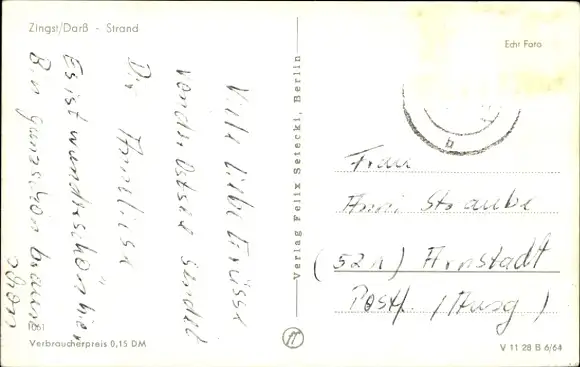 Zingst/Darß - Strand
Echt Foto
Viele liebe Grüsse
von der Ostsee sendet
Dir Anneliese
Es ist wunderschön hier
Bin ganz schön braun
schon
Verlag Felix Setecki, Berlin
b
Frau
Anni Straube
(52n) Arnstadt
Postf. (Ausg)
1061
Verbraucherpreis 0,15 DM
V 11 28 B 6/64